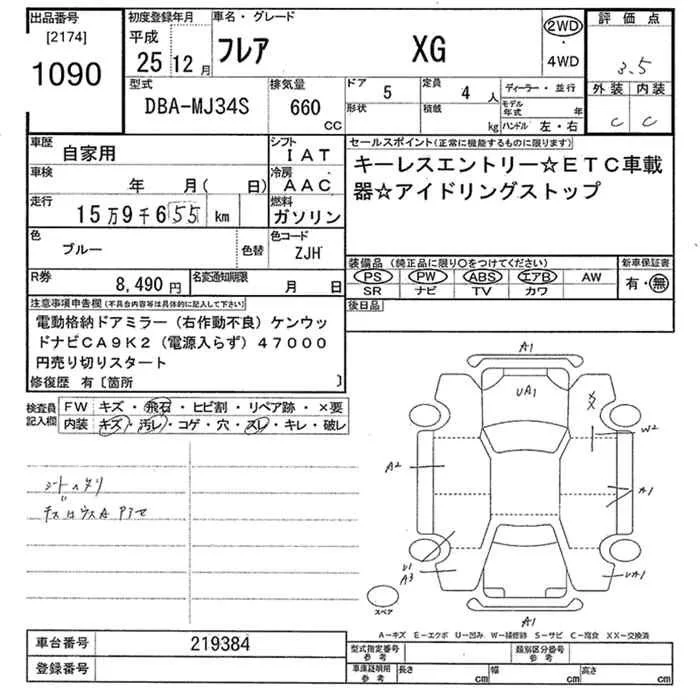 出品番号
[2174]
1090
初度登録年月
平成
25 12 月
車名・グレード
フレア XG
2WD
・
4WD
評価点
3.5
外装 内装
C C
型式
DBA-MJ34S
排気量
660
CC
ドア 5
定員 4 人
形状
積載 kg
ディーラー・並行
モデル年式 年
ハンドル 左・右
車歴
自家用
シフト
IAT
車検
年 月( 日)
冷房
AAC
走行
15万9千6 55 km
燃料
ガソリン
色
ブルー
色替
色コード
ZJH
R券
8,490円
名変通知期限
月 日
セールスポイント(正常に機能するものに限ります)
キーレスエントリー☆ETC車載
器☆アイドリングストップ
装備品 (純正品に限り○をつけてください)
PS PW ABS エアB AW
SR ナビ TV カワ
新車保証書
有・無
後日品
注意事項申告欄(不具合内容等は具体的に記入して下さい)
電動格納ドアミラー(右作動不良)ケンウッ
ドナビCA9K2(電源入らず)47000
円売り切りスタート
修復歴 有〔箇所 〕
検査員
記入欄
FW キズ・飛石・ヒビ割・リペア跡・×要
内装 キズ・汚レ・コゲ・穴・スレ・キレ・破レ
A1
UA1
XX
W2
A2
A1
U1
A3
UA1
A1
スペア
A-キズ E-エクボ U-凹み W-補修跡 S-サビ C-腐食 XX-交換済
車台番号 219384
登録番号
型式指定番号
参考
類別区分番号
参考
車庫証明用
参考
長さ cm
幅 cm
高さ cm